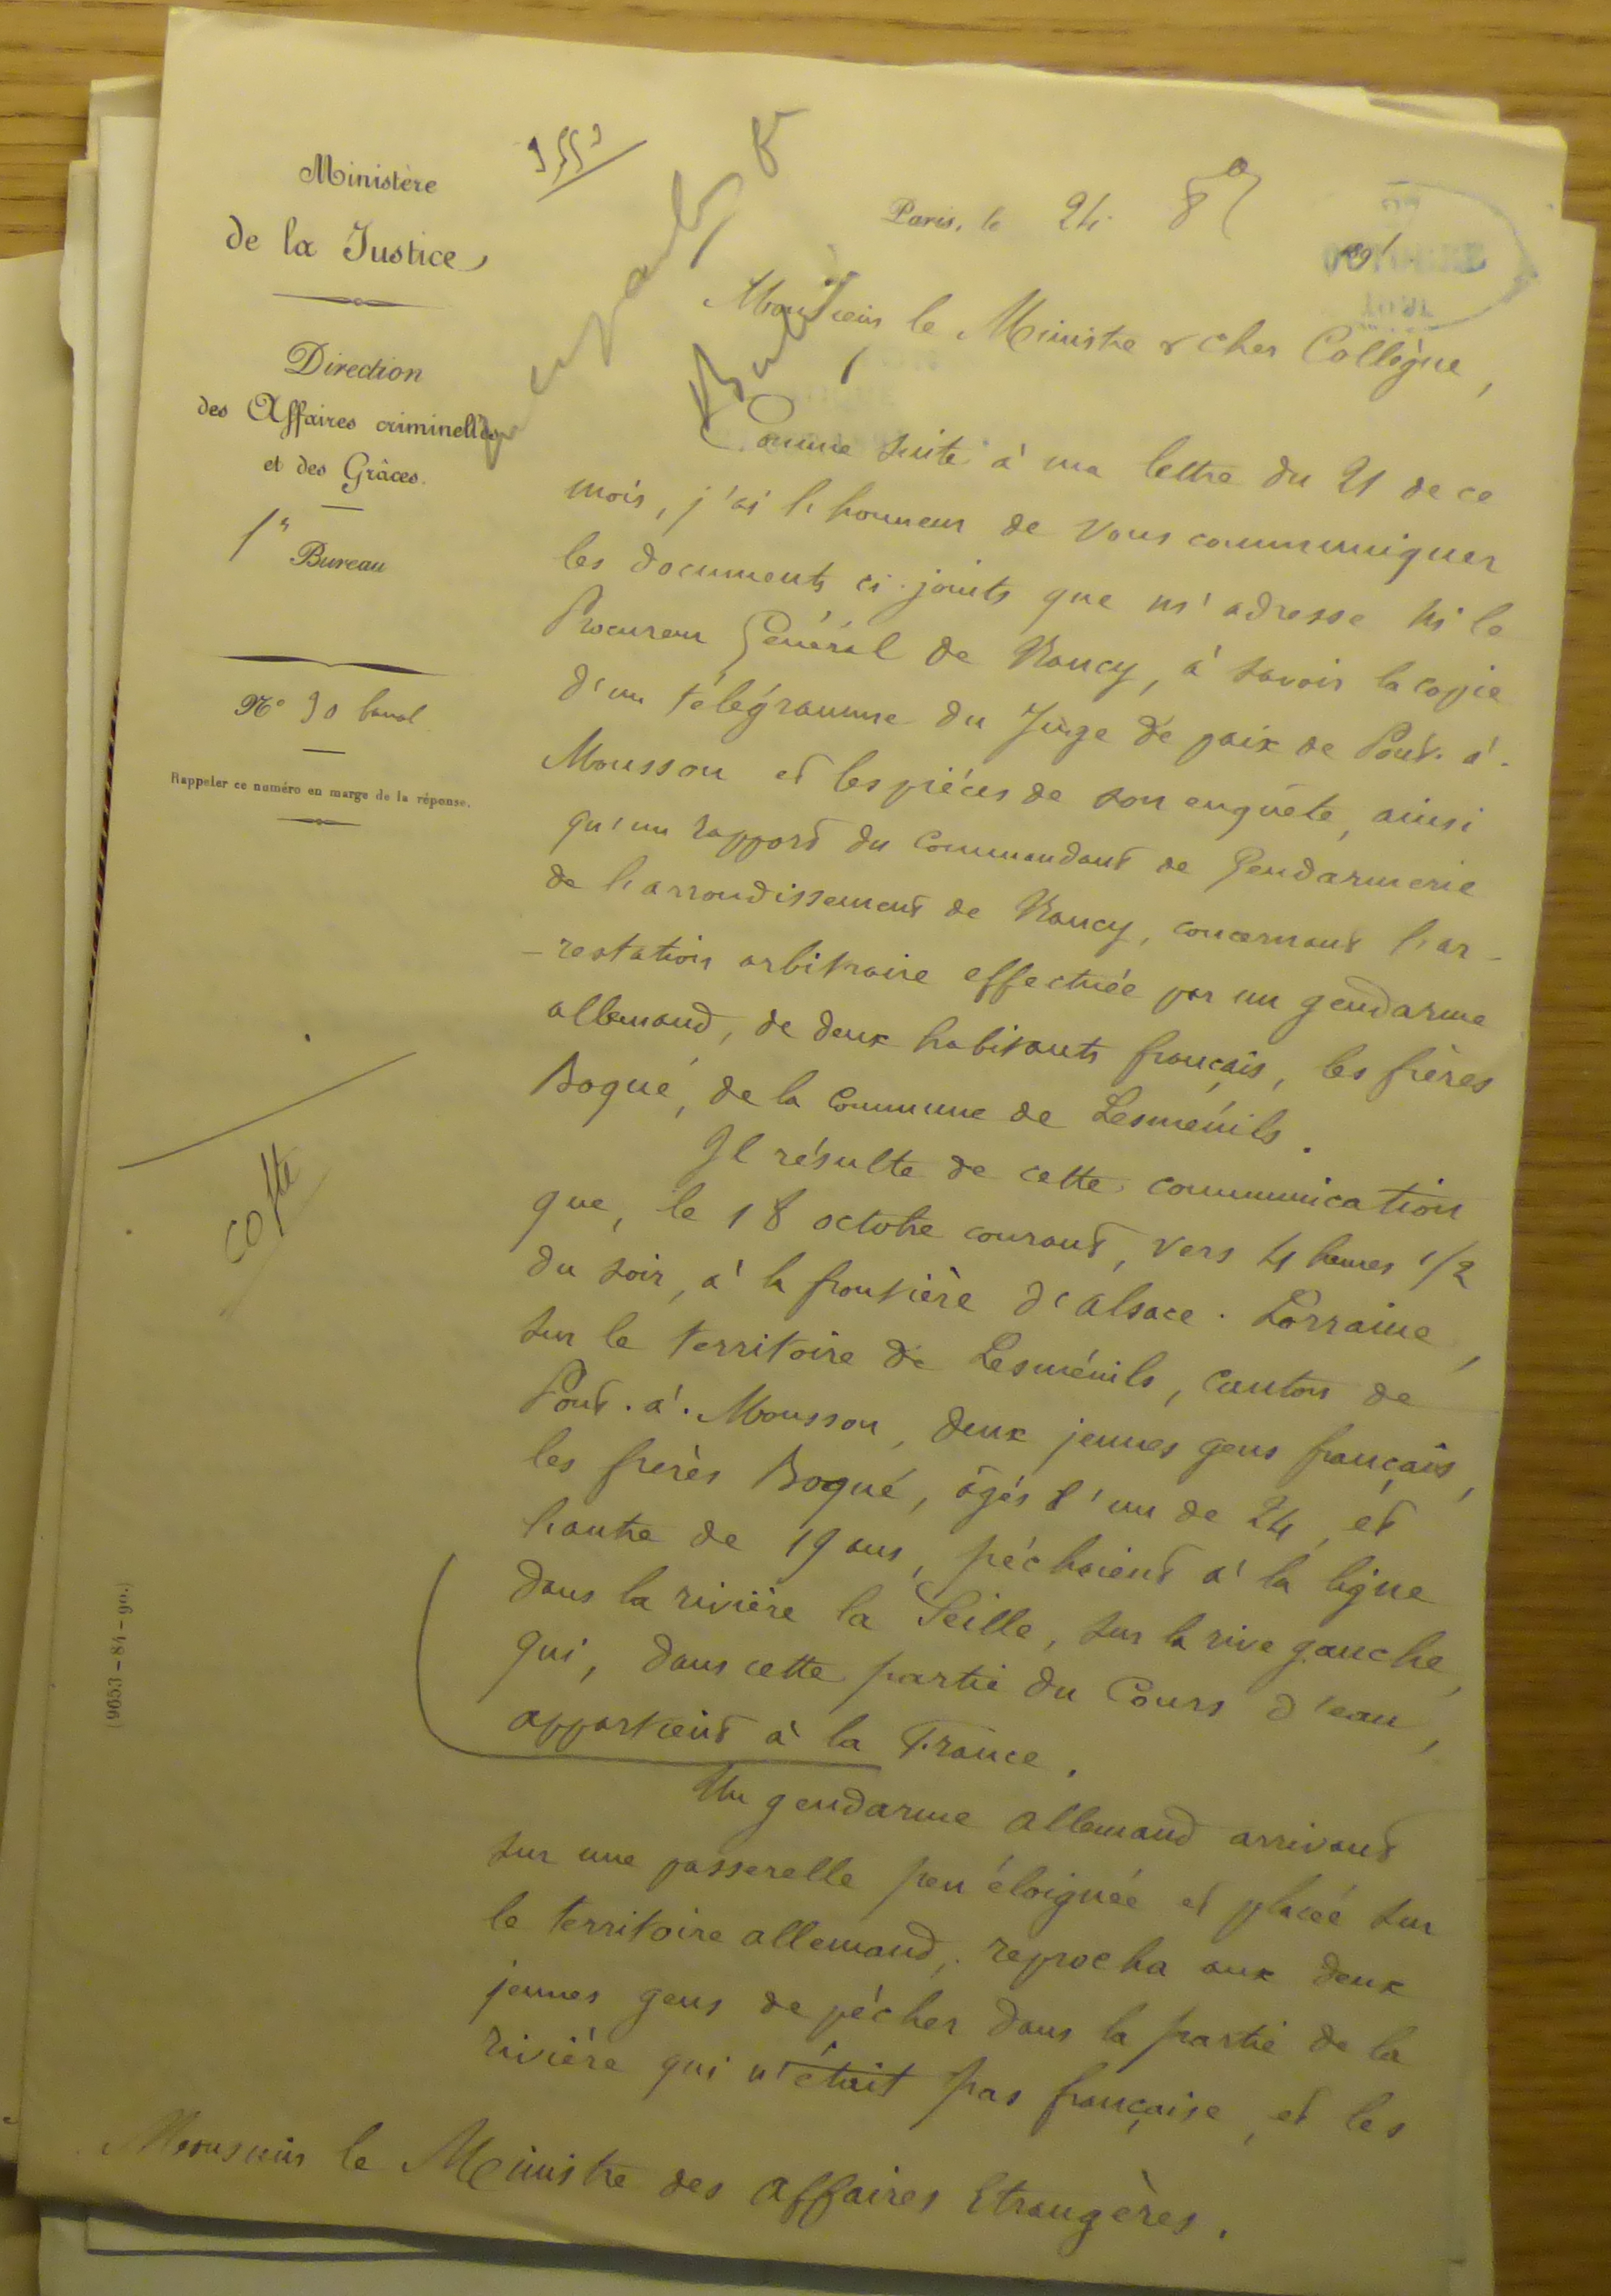 Ministère
de la Justice
Direction
des Affaires criminelles
et des Grâces.
1er Bureau
No 90 banal
Rappeler ce numéro en marge de la réponse.
Paris, le 24 8e 91
Monsieur le Ministre & cher Collègue,
Comme suite à ma lettre du 21 de ce
mois, j'ai l'honneur de vous communiquer
les documents ci-joints que m'adresse M le
Procureur Général de Nancy, à savoir la copie
d'un télégramme du Juge de paix de Pont-à-
Mousson et les pièces de son enquête, ainsi
qu'un rapport du Commandant de Gendarmerie
de l'arrondissement de Nancy, concernant l'ar-
-restation arbitraire effectuée par un gendarme
allemand, de deux habitants français, les frères
Boqué, de la Commune de Lesménils.
Il résulte de cette communication
que, le 18 octobre courant, vers 4 heures 1/2
du soir, à la frontière d'Alsace-Lorraine,
sur le territoire de Lesménils, canton de
Pont-à-Mousson, deux jeunes gens français,
les frères Boqué, âgés l'un de 24, et
l'autre de 19 ans, pêchaient à la ligne
dans la rivière la Seille, sur la rive gauche,
qui, dans cette partie du Cours d'eau,
appartient à la France.
Un gendarme allemand arrivant
sur une passerelle peu éloignée et placée sur
le territoire allemand, reprocha aux deux
jeunes gens de pêcher dans la partie de la
rivière qui n'était pas française, et les
Monsieur le Ministre des Affaires Etrangères.
copie
(9653-84-90.)